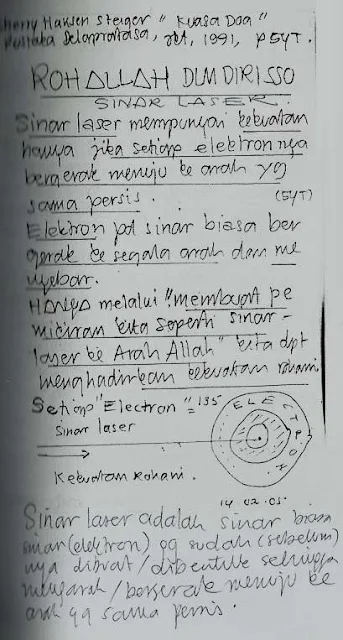 Sherry Hansen Steiger "Kuasa Doa"
Pustaka Delapratasa, Jkt, 1991, P54T.
ROH ALLAH DLM DIRI SSO
SINAR LASER.
Sinar laser mempunyai kekuatan
hanya jika setiap elektronnya
bergerak menuju ke arah yg
sama persis.
(54T)
Elektron pd sinar biasa ber
gerak ke segala arah dan me
nyebar.
HANYA melalui "membuat pe
mikiran kita seperti sinar-
laser ke Arah Allah" kita dpt
menghadirkan kekuatan rohani.
Setiap "Electron" = 135
Sinar laser
ELECTRON
Kekuatan Rohani.
14.02.05
Sinar laser adalah sinar biasa
sinar (elektron) yg sudah (sebelum)
nya dibuat/dibentuk sehingga
mengarah/bergerak menuju ke
arah yg sama persis.